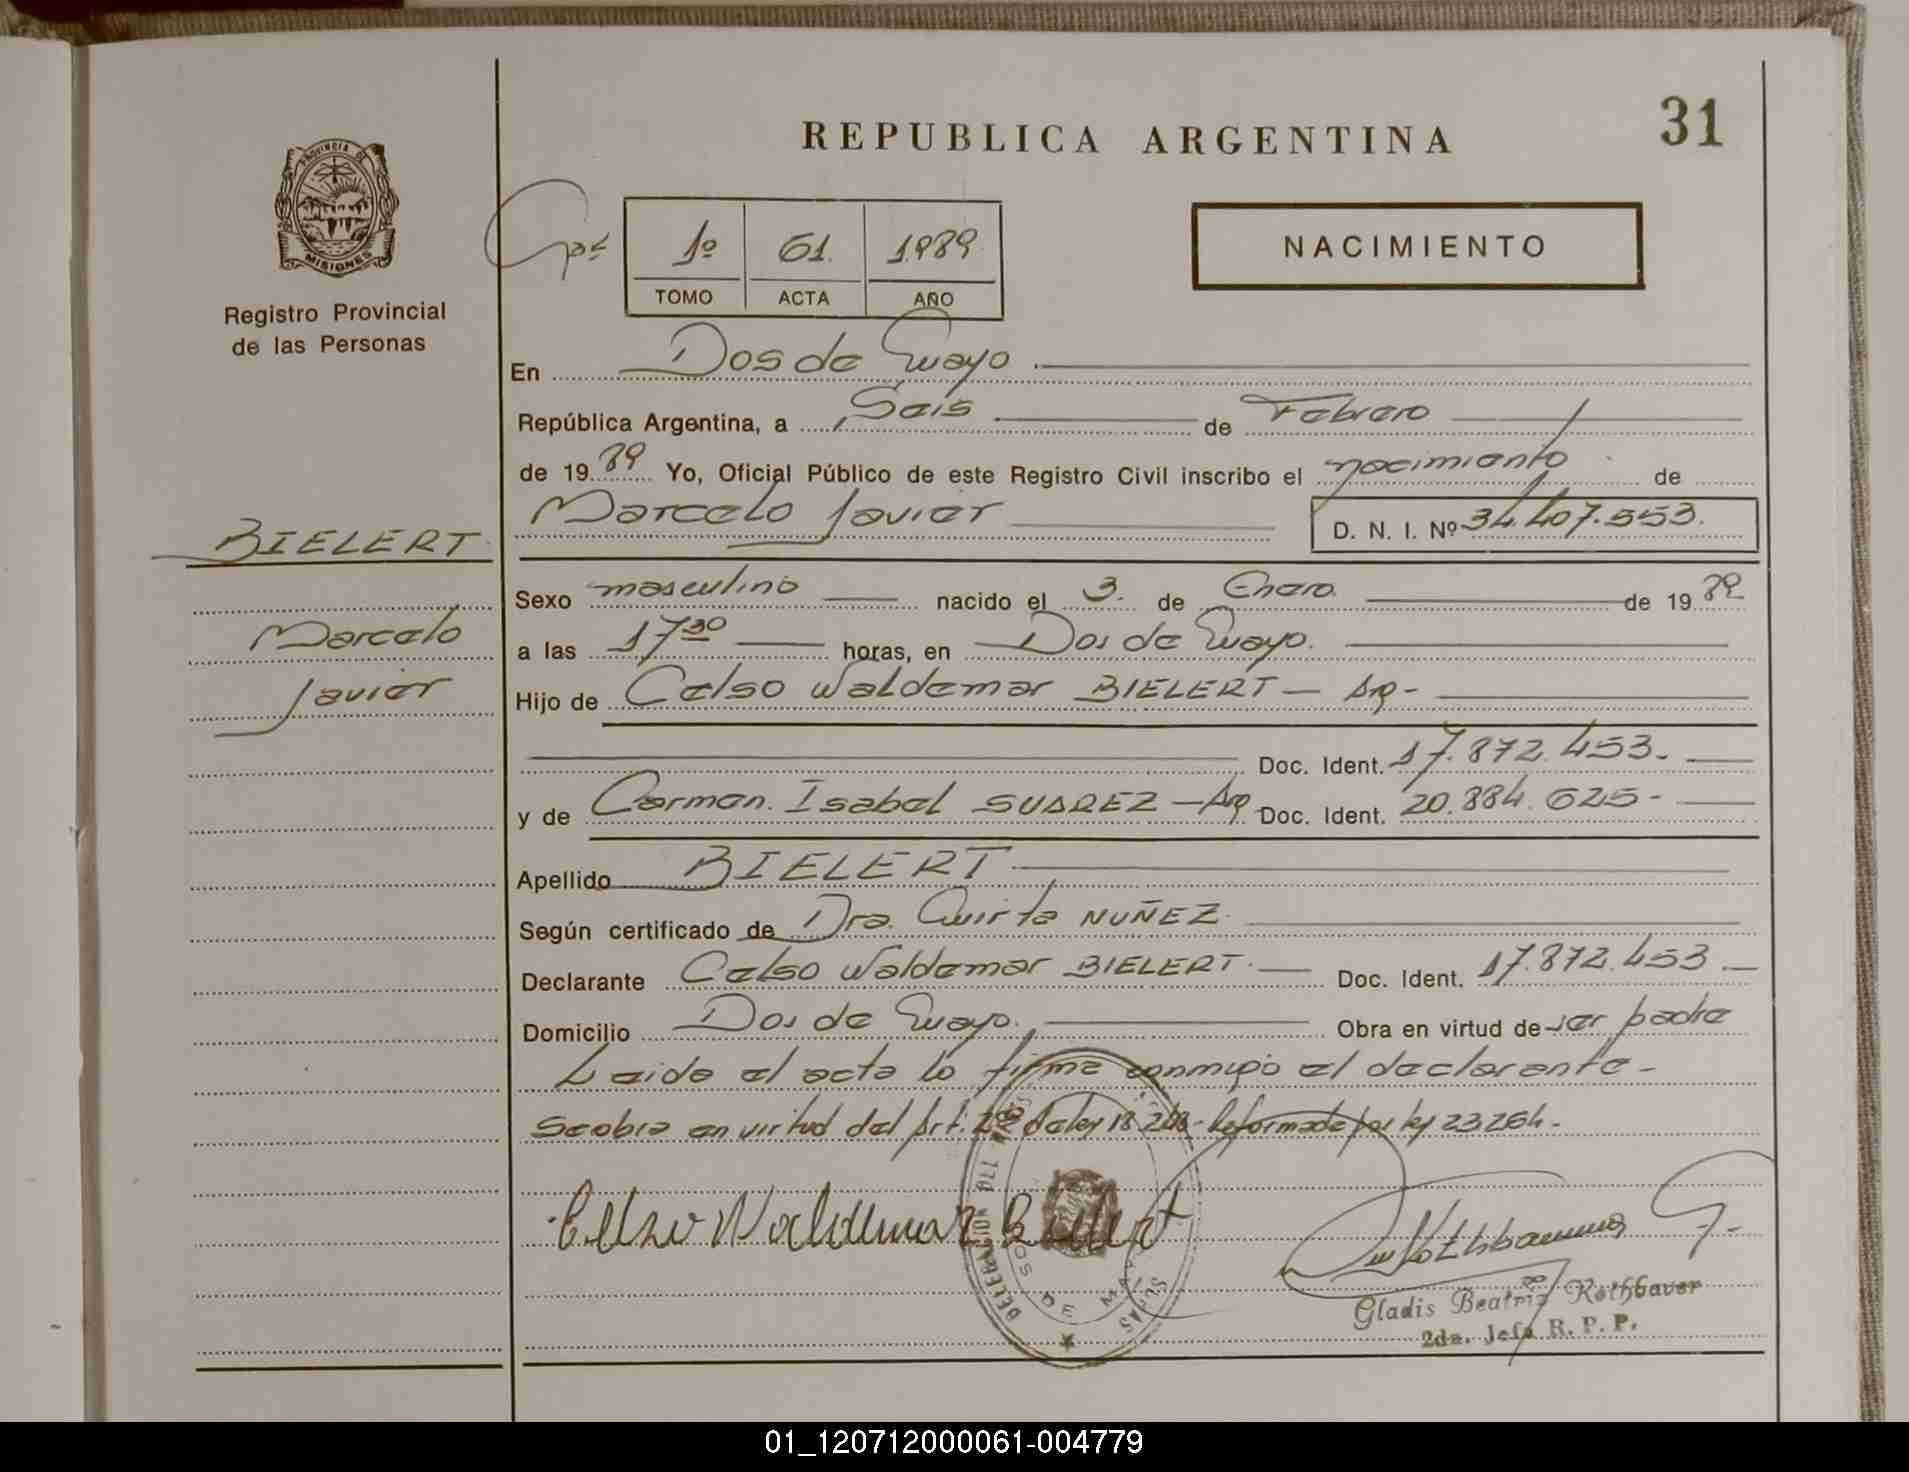 REPUBLICA ARGENTINA
31
PROVINCIA DE
MISIONES
Registro Provincial
de las Personas
1º 61. 1.989
TOMO ACTA AÑO
NACIMIENTO
En Dos de Mayo
República Argentina, a Seis de Febrero
de 19 89 Yo, Oficial Público de este Registro Civil inscribo el nacimiento de
Marcelo Javier D. N. I. Nº 34.407.553.
BIELERT
Marcelo
Javier
Sexo masculino nacido el 3. de Enero de 19 89
a las 17 30 horas, en Dos de Mayo.
Hijo de Celso Waldemar BIELERT - Arg -
Doc. Ident. 17.872.453.-
y de Carmen Isabel SUAREZ - Arg Doc. Ident. 20.884.625-
Apellido BIELERT
Según certificado de Dra. Quirta NUÑEZ
Declarante Celso Waldemar BIELERT. Doc. Ident. 17.872.453
Domicilio Dos de Mayo. Obra en virtud de ser padre
Leida el acta la firma conmigo el declarante-
Se obra en virtud del Art. 2º de ley 18.248- Reformada por ley 23264-
Celso Waldemar Bielert
DOS DE MAYO
Gladis Beatriz Rothbaver
2da. Jefa R. P. P.
01_120712000061-004779